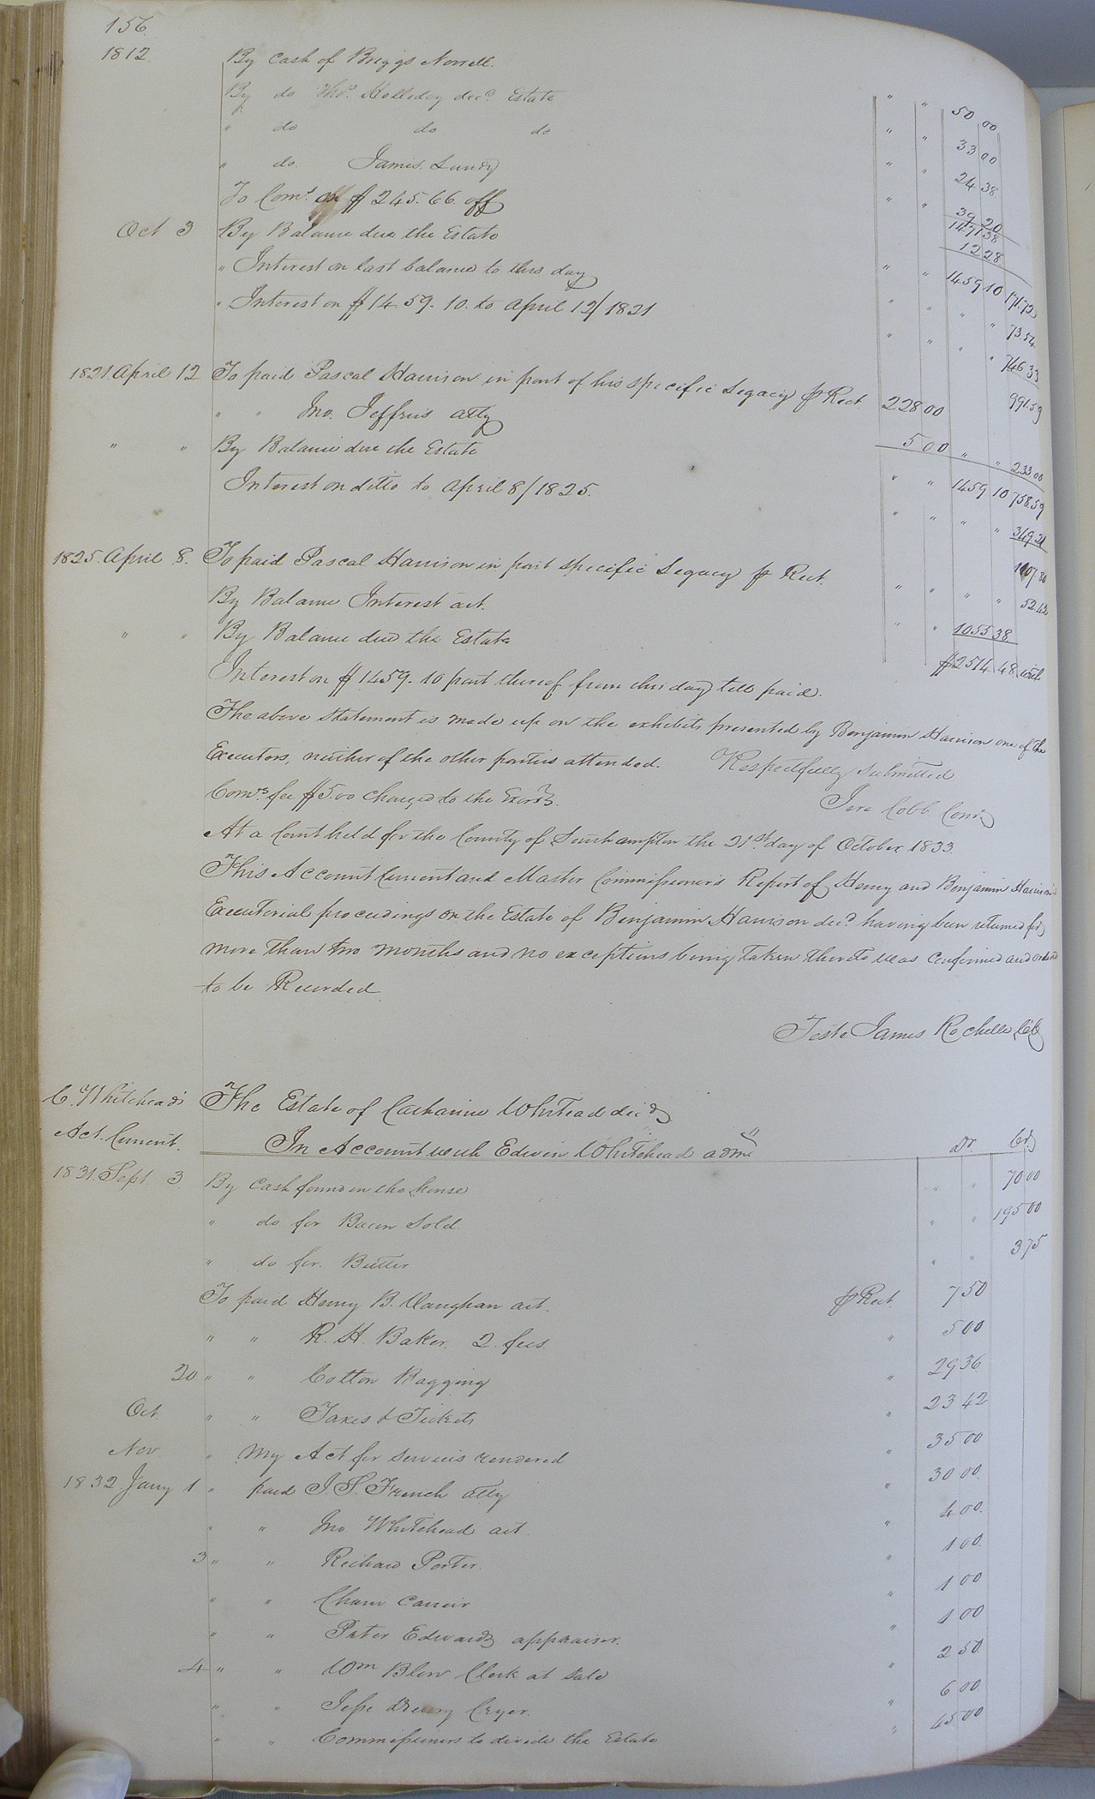 156
1812 By Cash of Briggs Norrell. " " 50 00
By do Thos. Holleday decd. Estate " " 33 00
" do do do " " 24 38
" do James Lundy " " 39 20
147138
To Coms. on $245.66 off 12 28
Oct 3 By Balance due the Estate " " 1459 10 171.72
" Interest on last balance to this day " " " " 73.54
" Interest on $1459.10. to April 12/1821 " " " " 746.33
991.59
1821 April 12 To paid Pascal Harrison in part of his specific Legacy p Rect 228 00
" " Jno. Jeffries atty 5 00 " " 233 00
" " By Balance due the Estate " " 1459 10 758.59
Interest on ditto to April 8/1825. " " " " 349.21
1107 80
1825 April 8. To paid Pascal Harrison in part specific Legacy p Rect. " " " " 52.42
By Balance Interest act. " " 1055 38
" " By Balance due the Estate $2514 48
Interest on $1459.10 part thereof from this day till paid.
The above Statement is made up on the exhibits presented by Benjamin Harrison one of the
Executors, neither of the other parties attended. Respectfully Submitted
Coms. fee $5.00 charged to the Exors. Jere Cobb Comr.
At a Court held for the County of Southampton the 21st day of October 1833
This Account Current and Master Commissioner's Report of Henry and Benjamin Harrison's
Executorial proceedings on the Estate of Benjamin Harrison decd. having been returned for
more than two months and no exceptions being taken thereto was confirmed and ordered
to be Recorded
Teste James Rochelle Clk
C. Whitehead's The Estate of Catharine Whitead decd
Act. Current. In Account with Edwin Whitehead admr Dr. Cr.
1831 Sept 3 By Cash found in the house " " 70 00
" do for Bacon Sold " " 195 00
" do for Butter " " 3 75
To paid Henry B. Vaughan act. p Rect. 7 50
" " R. H. Baker 2 fees " 5 00
20 " " Cotton Bagging " 29 36
Oct " " Taxes & Tickets " 23 42
Nov " My Act for services rendered " 35 00
1832 Jany 1 " paid J. S. French atty " 30 00
" " Jno Whitehead act " 4 00
3 " " Richard Porter " 1 00
" " Carrier " 1 00
" " Peter Edwards appraiser. " 1 00
4 " " Wm Blow Clerk at Sale " 2 50
" " Jesse Drewry Cryer " 6 00
" " Commissioners to divide the Estate " 45 00